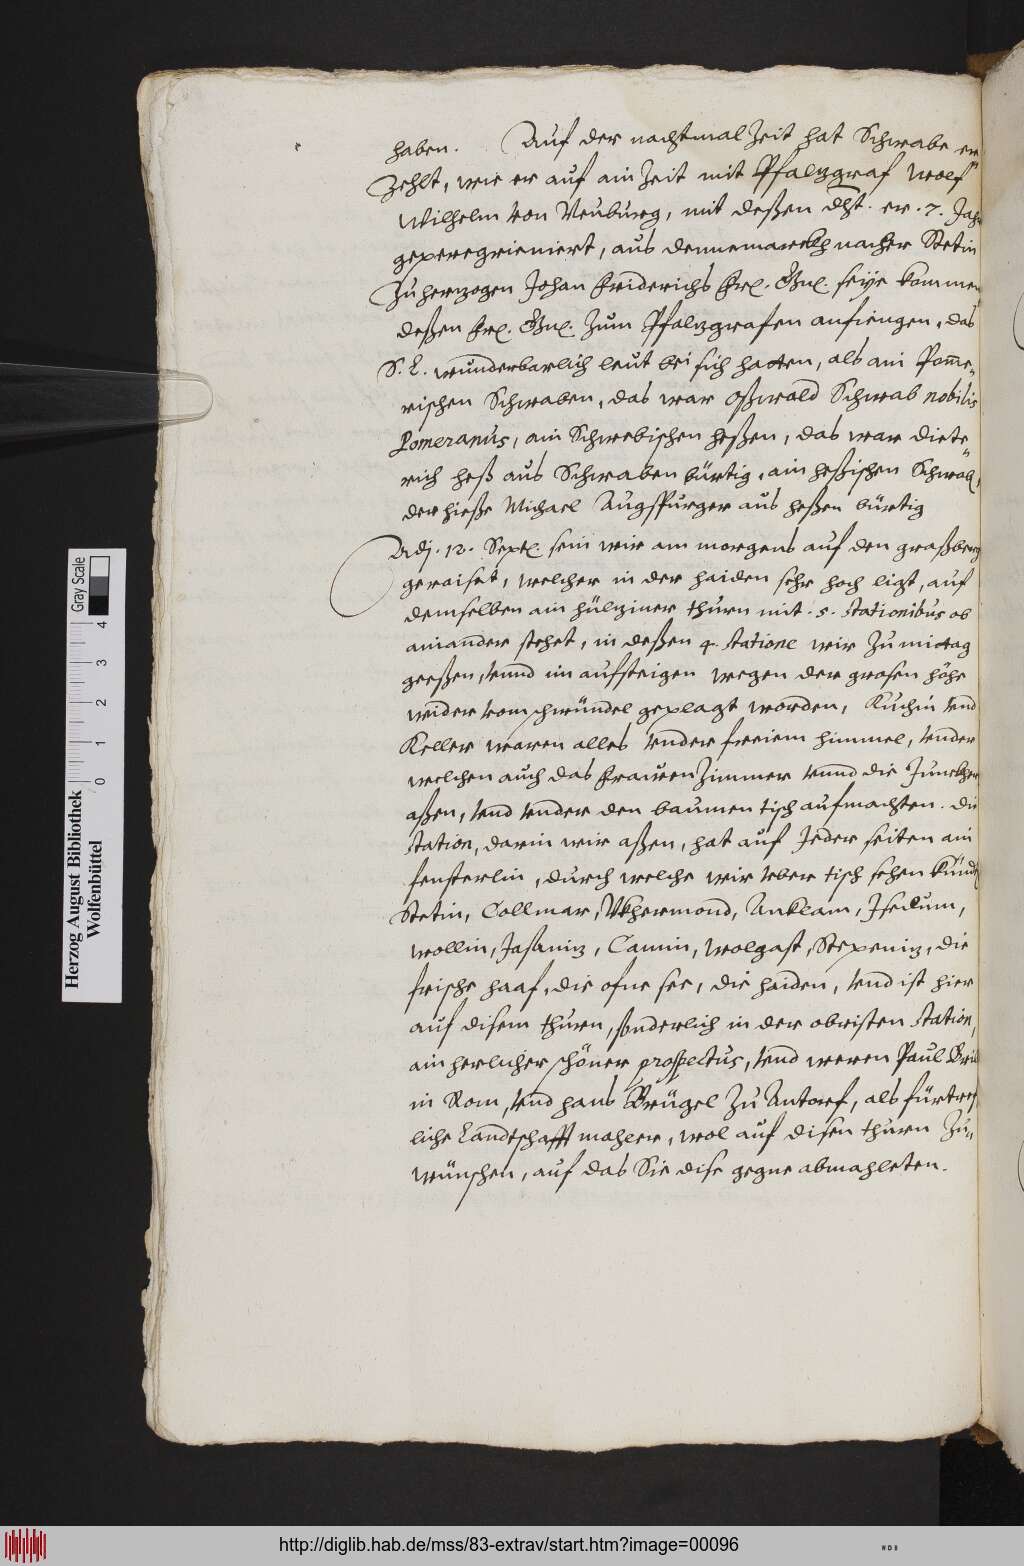 haben. Auf der nachtmal Zeit hat Schwabe er„
Zehlt, wie er auf ain Zeit mit Pfalzgraf Wolf
Wilhelm von Neuburg, mit deßen dht. er .7. Jahr
geperegrieniert, aus dennemarckh nacher Stetin
Zu herzogen Johan Friderichs Frl. Gnl. seye kommen
deßen Frl. Gnl. Zum Pfalzgrafen anfiengen, das
S. L. wunderbarlich leut bei sich hatten, als ain Pom̄e„
rischen Schwaben, das war Oßwald Schwab nobilis
Pomeranus, ain Schwebischen heßen, das war Diete„
rich heß aus Schwaben bürtig, ain heßischen Schwab,
der hieße Michael Augspurger aus heßen bürtig
Adj. 12. Septe. sein wir am morgens auf den graßberg
geraiset, welcher in der haiden sehr hoch ligt, auf
demselben ain hülziner thurn mit .5. stationibus ob
ainander stehet, in deßen 4. statione wir Zu mittag
geeßen, vnnd im aufsteigen wegen der grosen höhe
wider vom schwündel geplagt worden, Kuchin vnd
Keller waren alles vnder freiem himmel, vnder
welchen auch das Frauen Zimmer vnnd die Junckher
aßen, vnd vnder den baumen tisch aufmachten. die
station, darin wir aßen, hat auf Jeder seiten ain
fensterlin, durch welche wir vber tisch sehen künden
Stetin, Collmar, Vkhermond, Anklam, Isedum,
Wollin, Jasaniz, Camin, Wolgast, Stepeniz, die
frische haaf, die ofne see, die haiden, vnd ist hier
auf disem thurn, sonderlich in der obristen station,
ain herlicher schöner prospectus, vnd weren Paul Bril
in Rom, vnd hans Brügel Zu Antorf, als fürtref
liche Landtschafft mahler, wol auf disen thurn Zu„
wünschen, auf das Sie dise gegne abmahleten.
Herzog August Bibliothek
Wolfenbüttel
Gray Scale
0 1 2 3 4
http://diglib.hab.de/mss/83-extrav/start.htm?image=00096
WDB